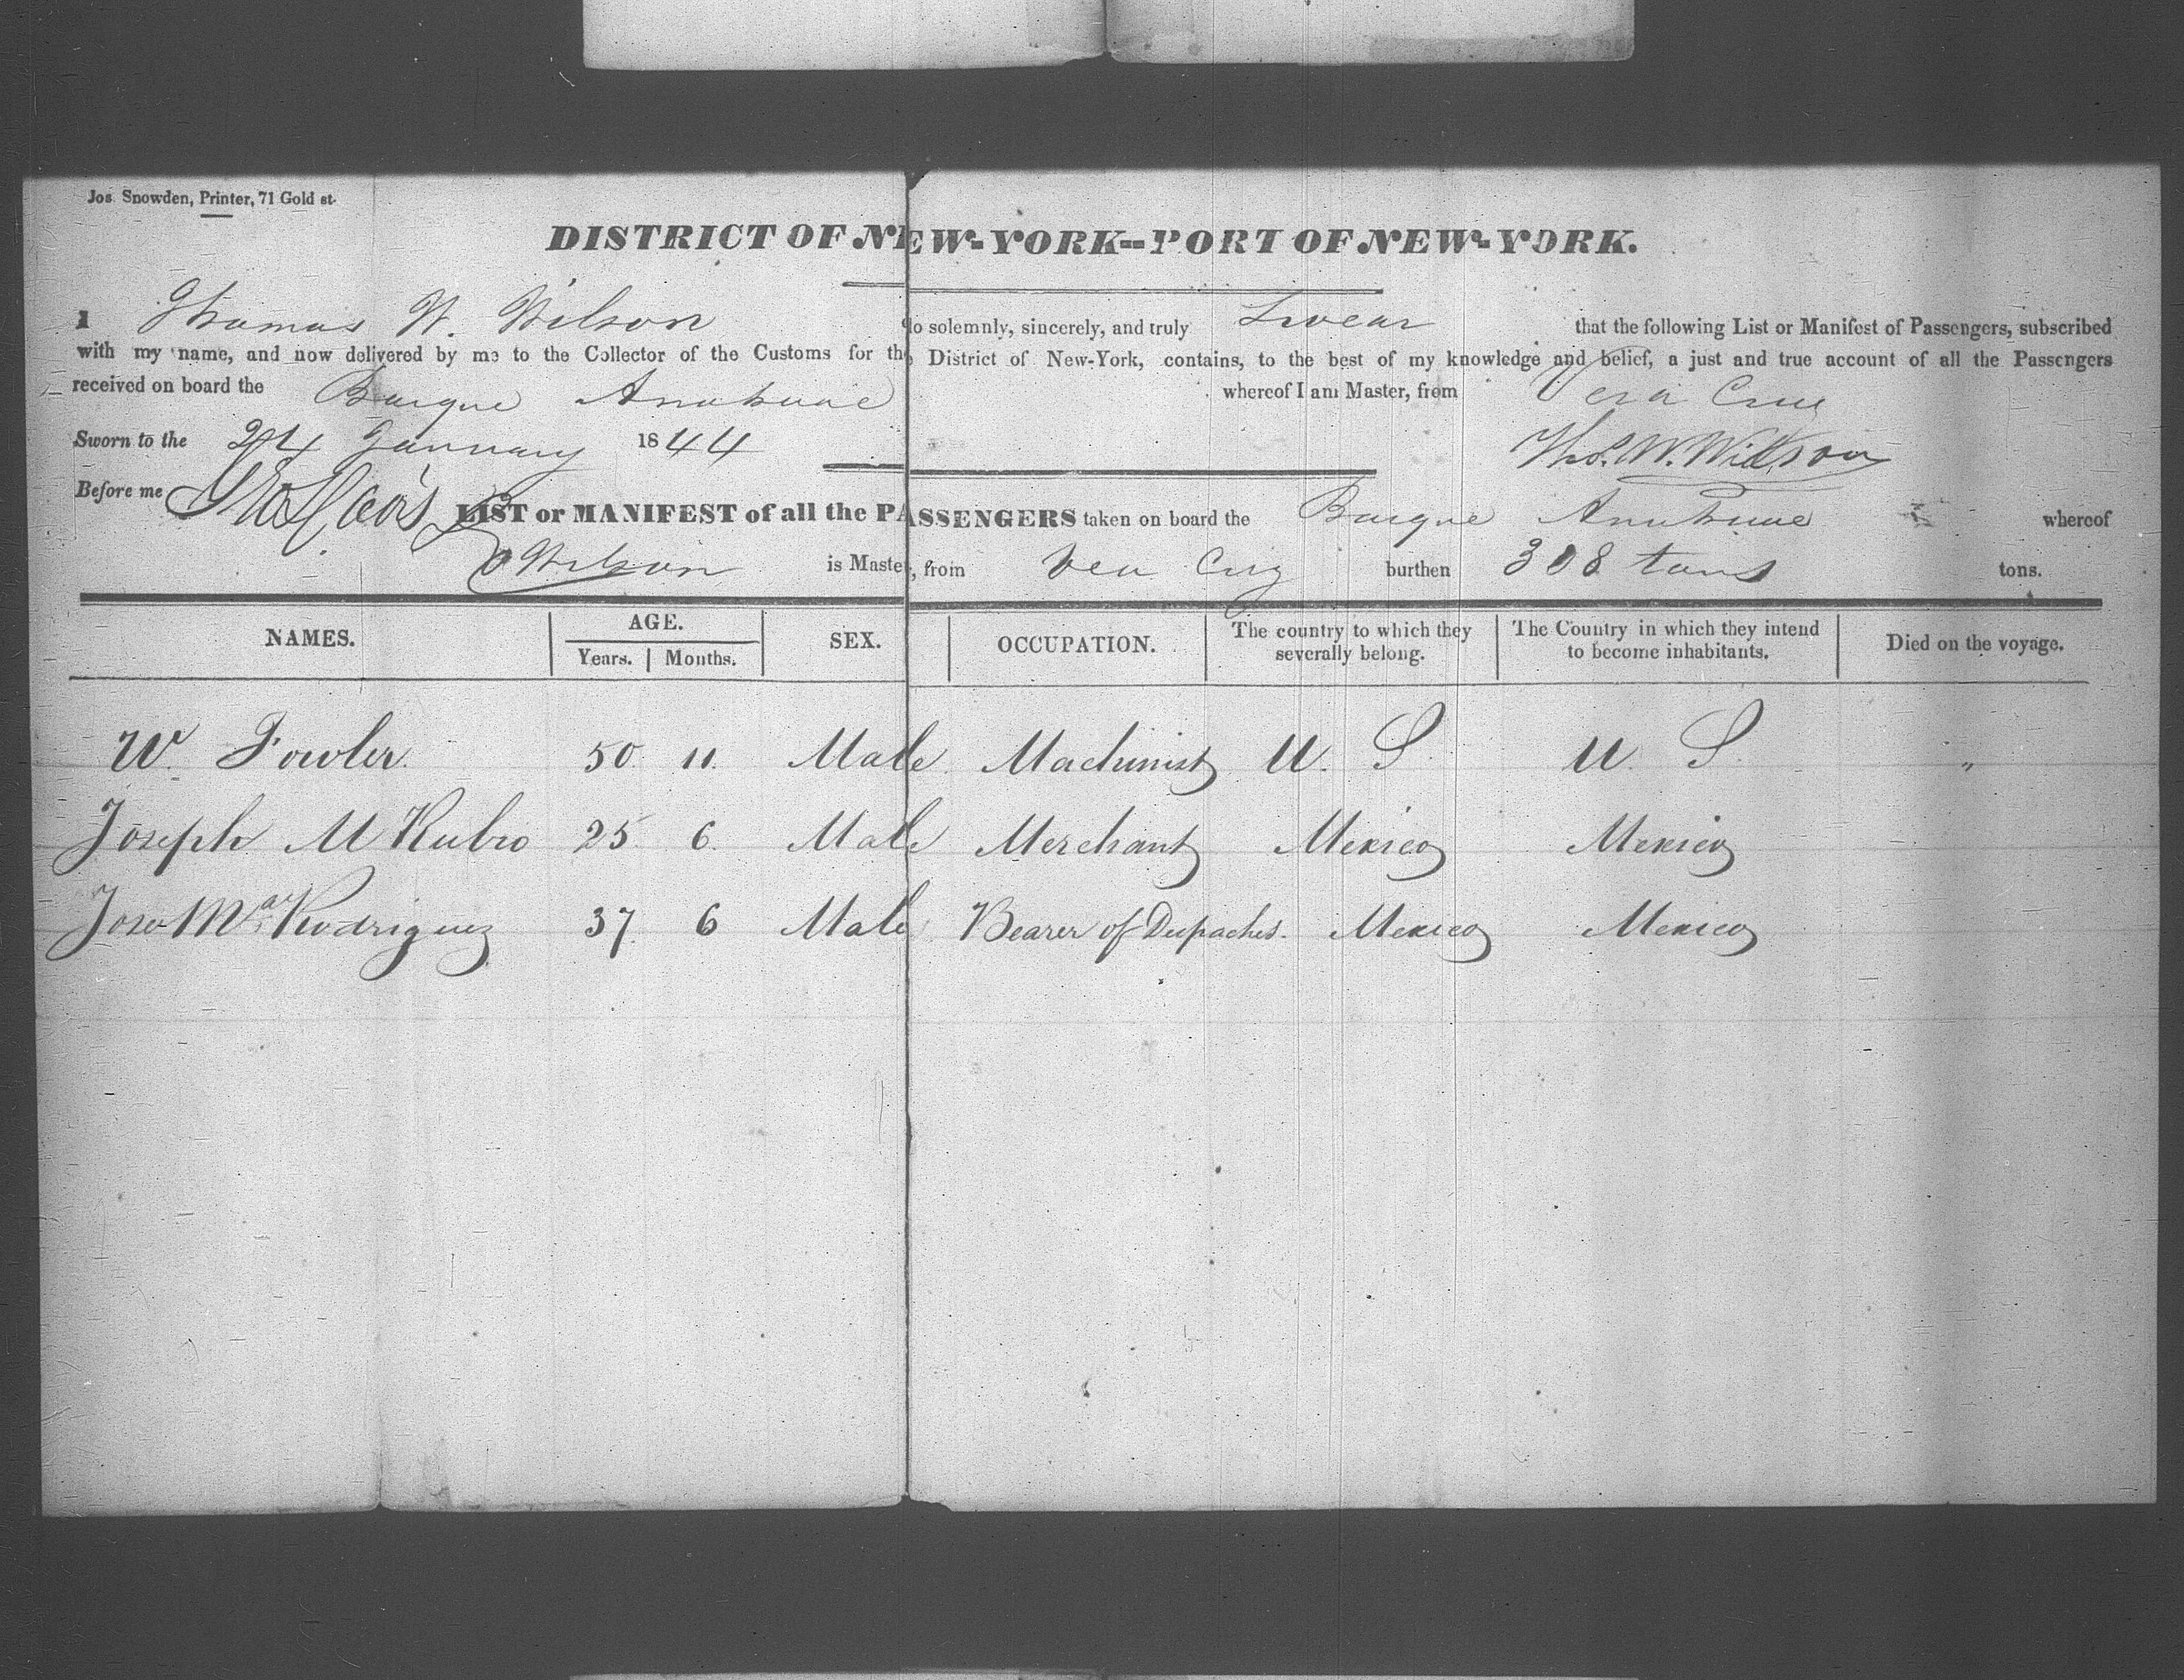 Jos. Snowden, Printer, 71 Gold st.
DISTRICT OF NEW-YORK--PORT OF NEW-YORK.
I Thomas W. Wilson do solemnly, sincerely, and truly Swear that the following List or Manifest of Passengers, subscribed
with my name, and now delivered by me to the Collector of the Customs for the District of New-York, contains, to the best of my knowledge and belief, a just and true account of all the Passengers
received on board the Barque Anahuac whereof I am Master, from Vera Cruz
Sworn to the 24 January 1844 Thos. W. Wilson
Before me
LIST or MANIFEST of all the PASSENGERS taken on board the Barque Anahuac whereof
Wilson is Master, from Vera Cruz burthen 308 tons tons.
NAMES. AGE. Years. Months. SEX. OCCUPATION. The country to which they severally belong. The Country in which they intend to become inhabitants. Died on the voyage.
W. Fowler. 50. 11. Male Machinist U. S. U. S. "
Joseph M Rubio 25. 6. Male Merchant Mexico Mexico
Jose Ma. Rodriguez 37. 6 Male Bearer of Dispaches. Mexico Mexico